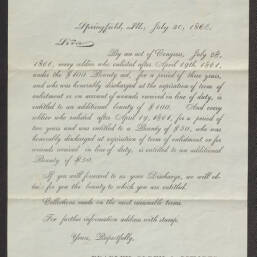 Springfield, Ill., July 30, 1866.
Sir:
By an act of Congress, July 28,
1866, every soldier who enlisted after April 19th 1861,
under the $100 Bounty act, for a period of three years,
and who was honorably discharged at expiration of term of
enlistment or on account of wounds received in line of duty, is
entitled to an additional bounty of $100. And every
soldier who enlisted after April 19, 1861, for a period of
two years and was entitled to a Bounty of $50, who was
honorably discharged at expiration of term of enlistment or for
wounds received in line of duty, is entitled to an additional
Bounty of $50.
If you will forward to us your Discharge, we will ob-
tain for you the bounty to which you are entitled.
Collections made on the most reasonable terms.
For further information address with stamp.
Yours, Respectfully,